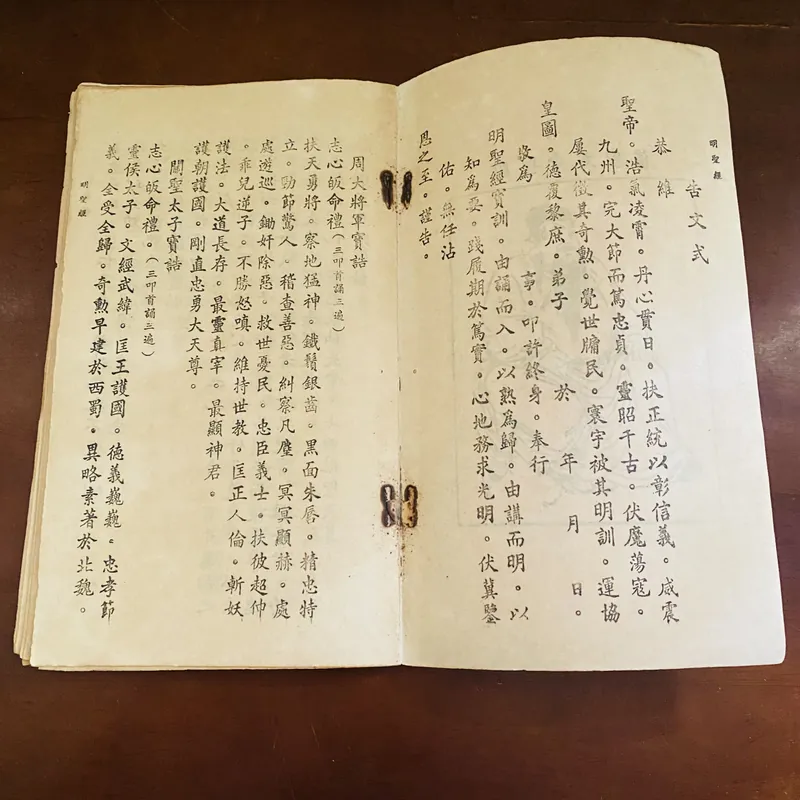 明聖經
告文式
恭維
聖帝。浩氣凌霄。丹心貫日。扶正統以彰信義。威震
九州。完大節而篤忠貞。靈昭千古。伏魔蕩寇。
屢代徵其奇勳。覺世牖民。寰宇被其明訓。運協
皇圖。德覆黎庶。弟子 於 年 月 日。
敬為 事。叩許終身。奉行
明聖經寶訓。由誦而入。以熟為歸。由講而明。以
知為要。踐履期於篤實。心地務求光明。伏冀鑒
佑。無任沾
恩之至。謹告。
周大將軍寶誥
志心皈命禮(三叩首誦三遍)
扶天勇將。察地猛神。鐵鬚銀齒。黑面朱唇。精忠特
立。勁節驚人。稽查善惡。糾察凡塵。冥冥顯赫。處
處遊巡。鋤奸除惡。救世憂民。忠臣義士。扶彼超伸
。乖兒逆子。不勝怒嗔。維持世教。匡正人倫。斬妖
護法。大道長存。最靈真宰。最顯神君。
護朝護國。剛直忠勇大天尊。
關聖太子寶誥
志心皈命禮。(三叩首誦三遍)
靈侯太子。文經武緯。匡王護國。德義巍巍。忠孝節
義。全受全歸。奇勳早建於西蜀。異略素著於北魏。
明聖經